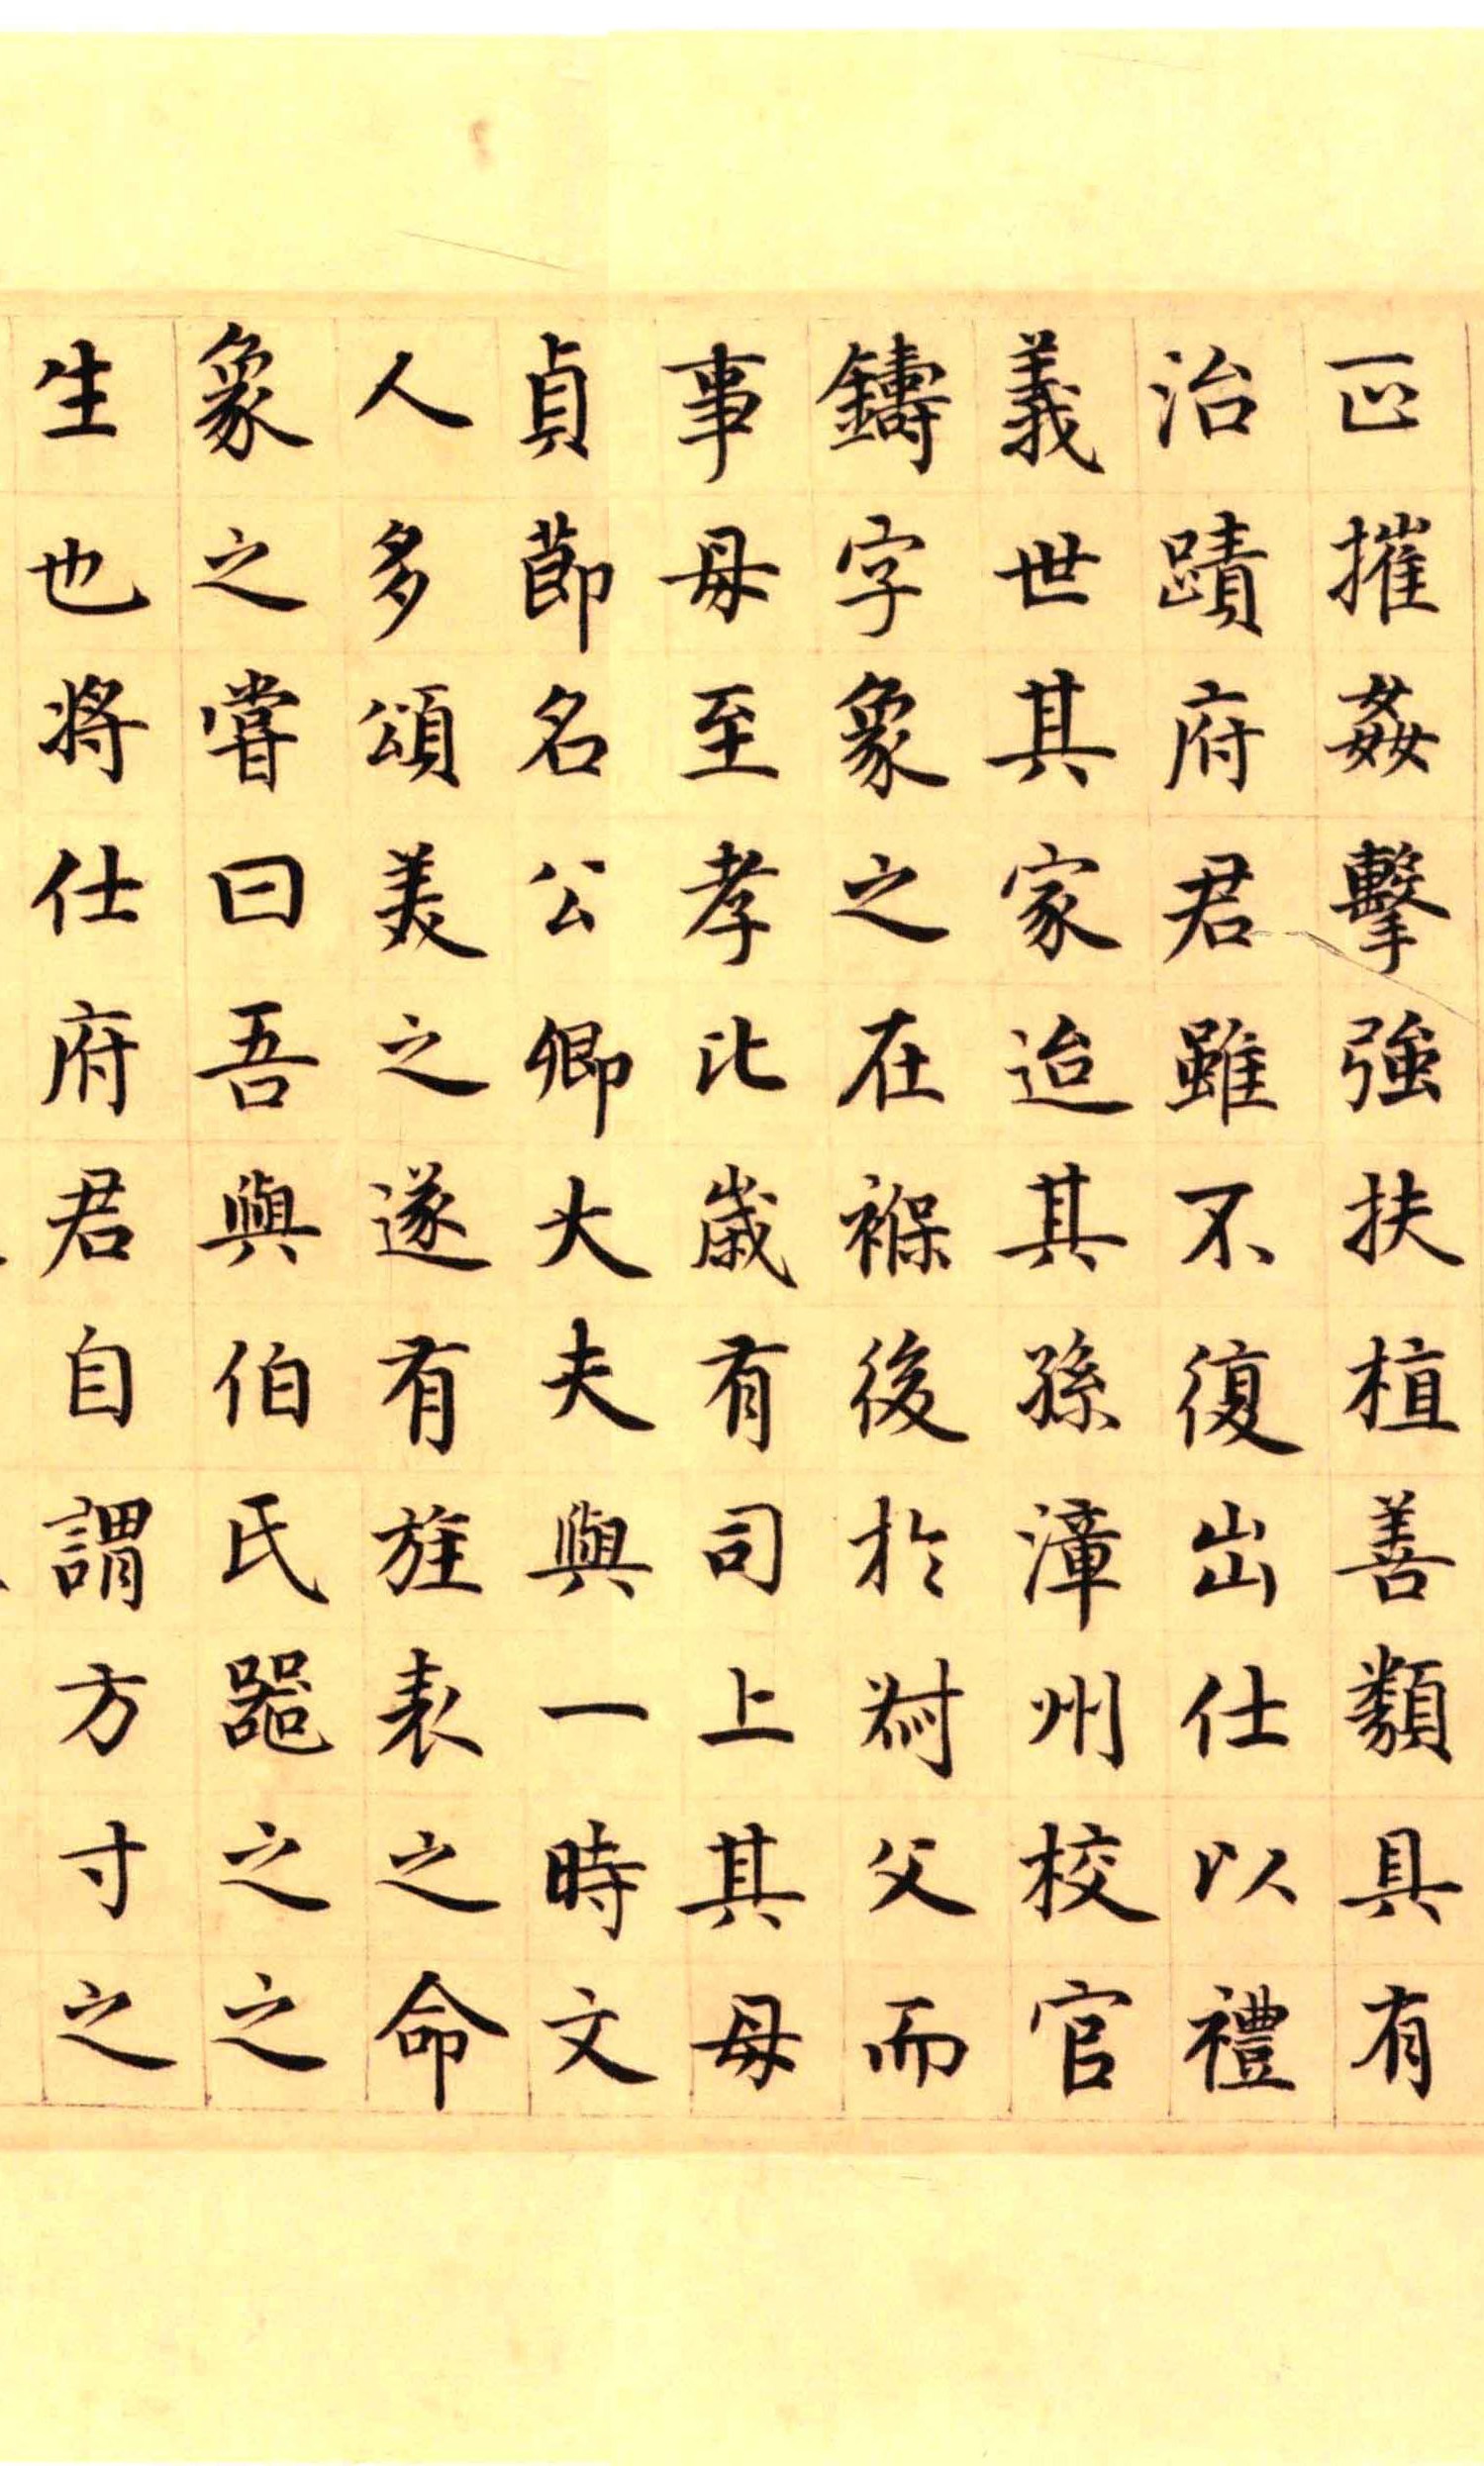 匹摧姦擊強扶植善類具有
治蹟府君雖不復出仕以禮
義世其家迨其孫漳州校官
鑄字象之在褓後於尌父而
事母至孝比歲有司上其母
貞節名公卿大夫與一時文
人多頌美之遂有旌表之命
象之嘗曰吾與伯氏器之之
生也將仕府君自謂方寸之